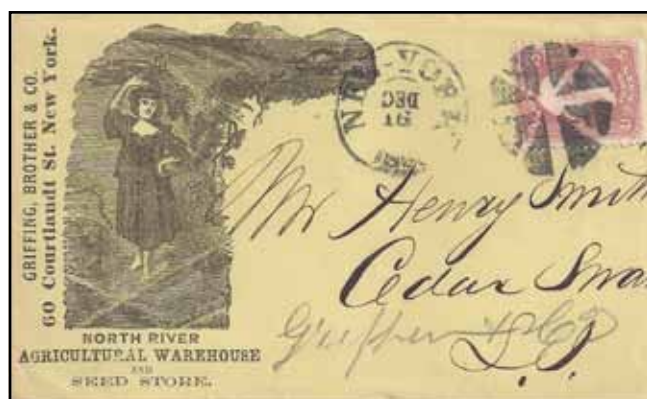 GRIFFING, BROTHER & CO.
60 Courtlandt St. New York.
NORTH RIVER
AGRICULTURAL WAREHOUSE
AND
SEED STORE.
NEW-YORK
DEC
Mr Henry Smith
Cedar Swa
L.I.